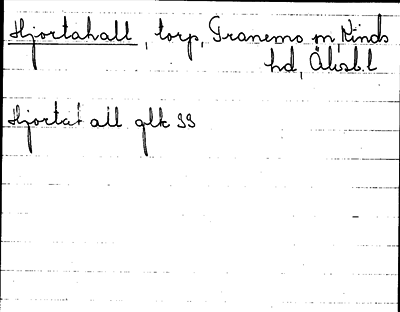 Hjortahall, torp, Tranemo sn, Kinds
hd, Älvsb. l
Hjortahall glk SS